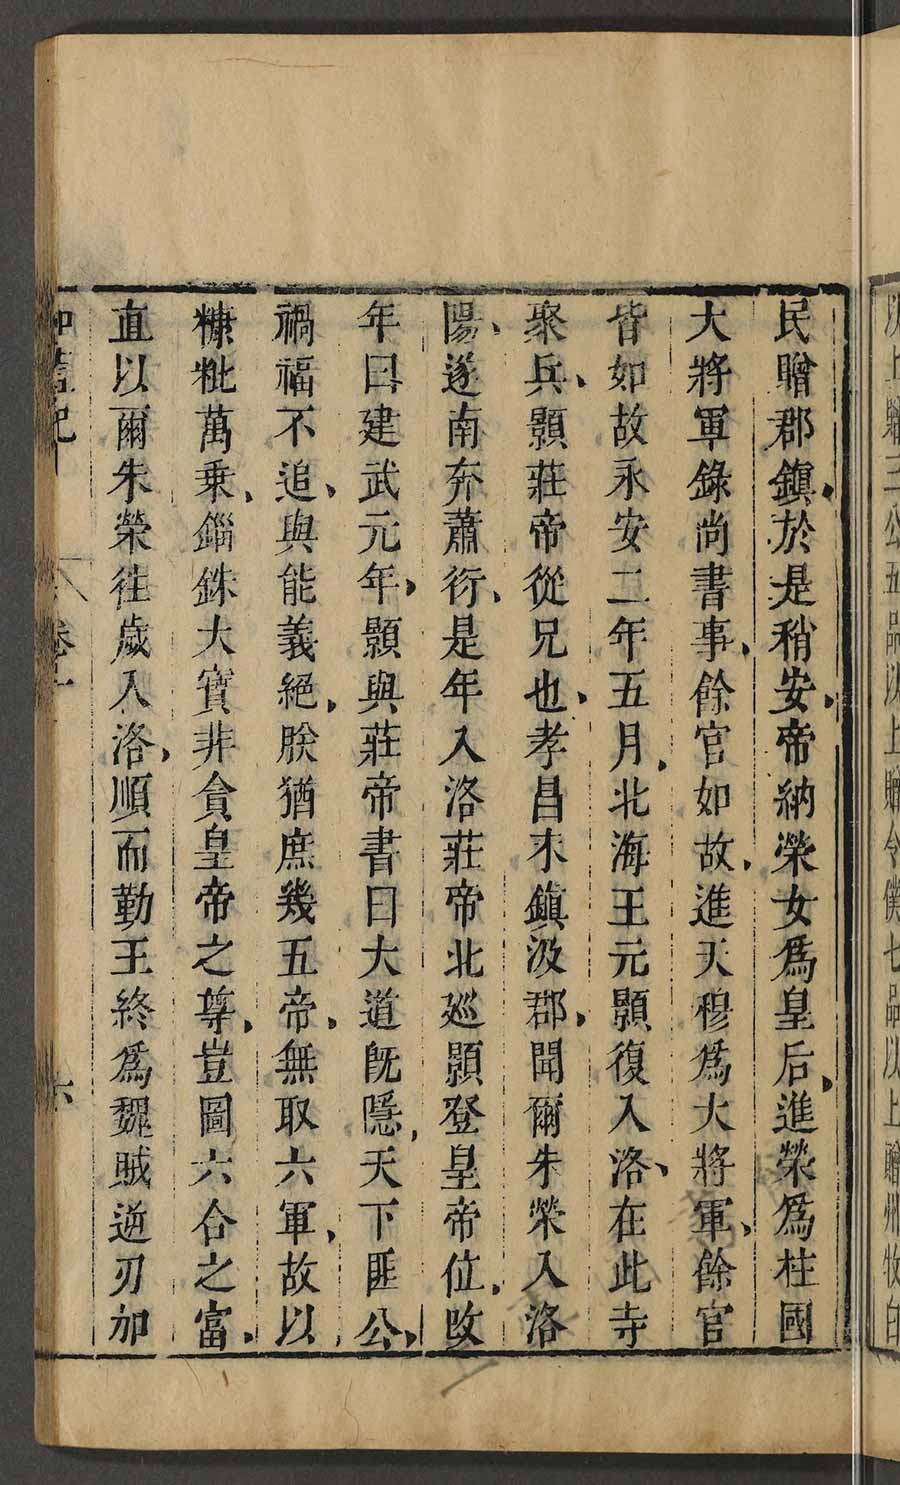 以上贈三公五品以上贈令僕七品以上贈州牧白
民贈郡鎮、於是稍安、帝納榮女爲皇后、進榮爲柱國
大將軍錄尚書事、餘官如故、進天穆爲大將軍、餘官
皆如故永安二年五月、北海王元顥復入洛、在此寺
聚兵、顥莊帝從兄也、孝昌末鎮汲郡、聞爾朱榮入洛
陽、遂南奔蕭衍、是年入洛莊帝北巡顥登皇帝位、改
年曰建武元年、顥與莊帝書曰大道旣隱、天下匪公、
禍福不追、與能義絕、朕猶庶幾五帝、無取六軍、故以
糠粃萬乘、錙銖大寳非貪皇帝之尊、豈圖六合之富、
直以爾朱榮往歲入洛、順而勤王終爲魏賊逆刃加
伽藍記 卷一 六